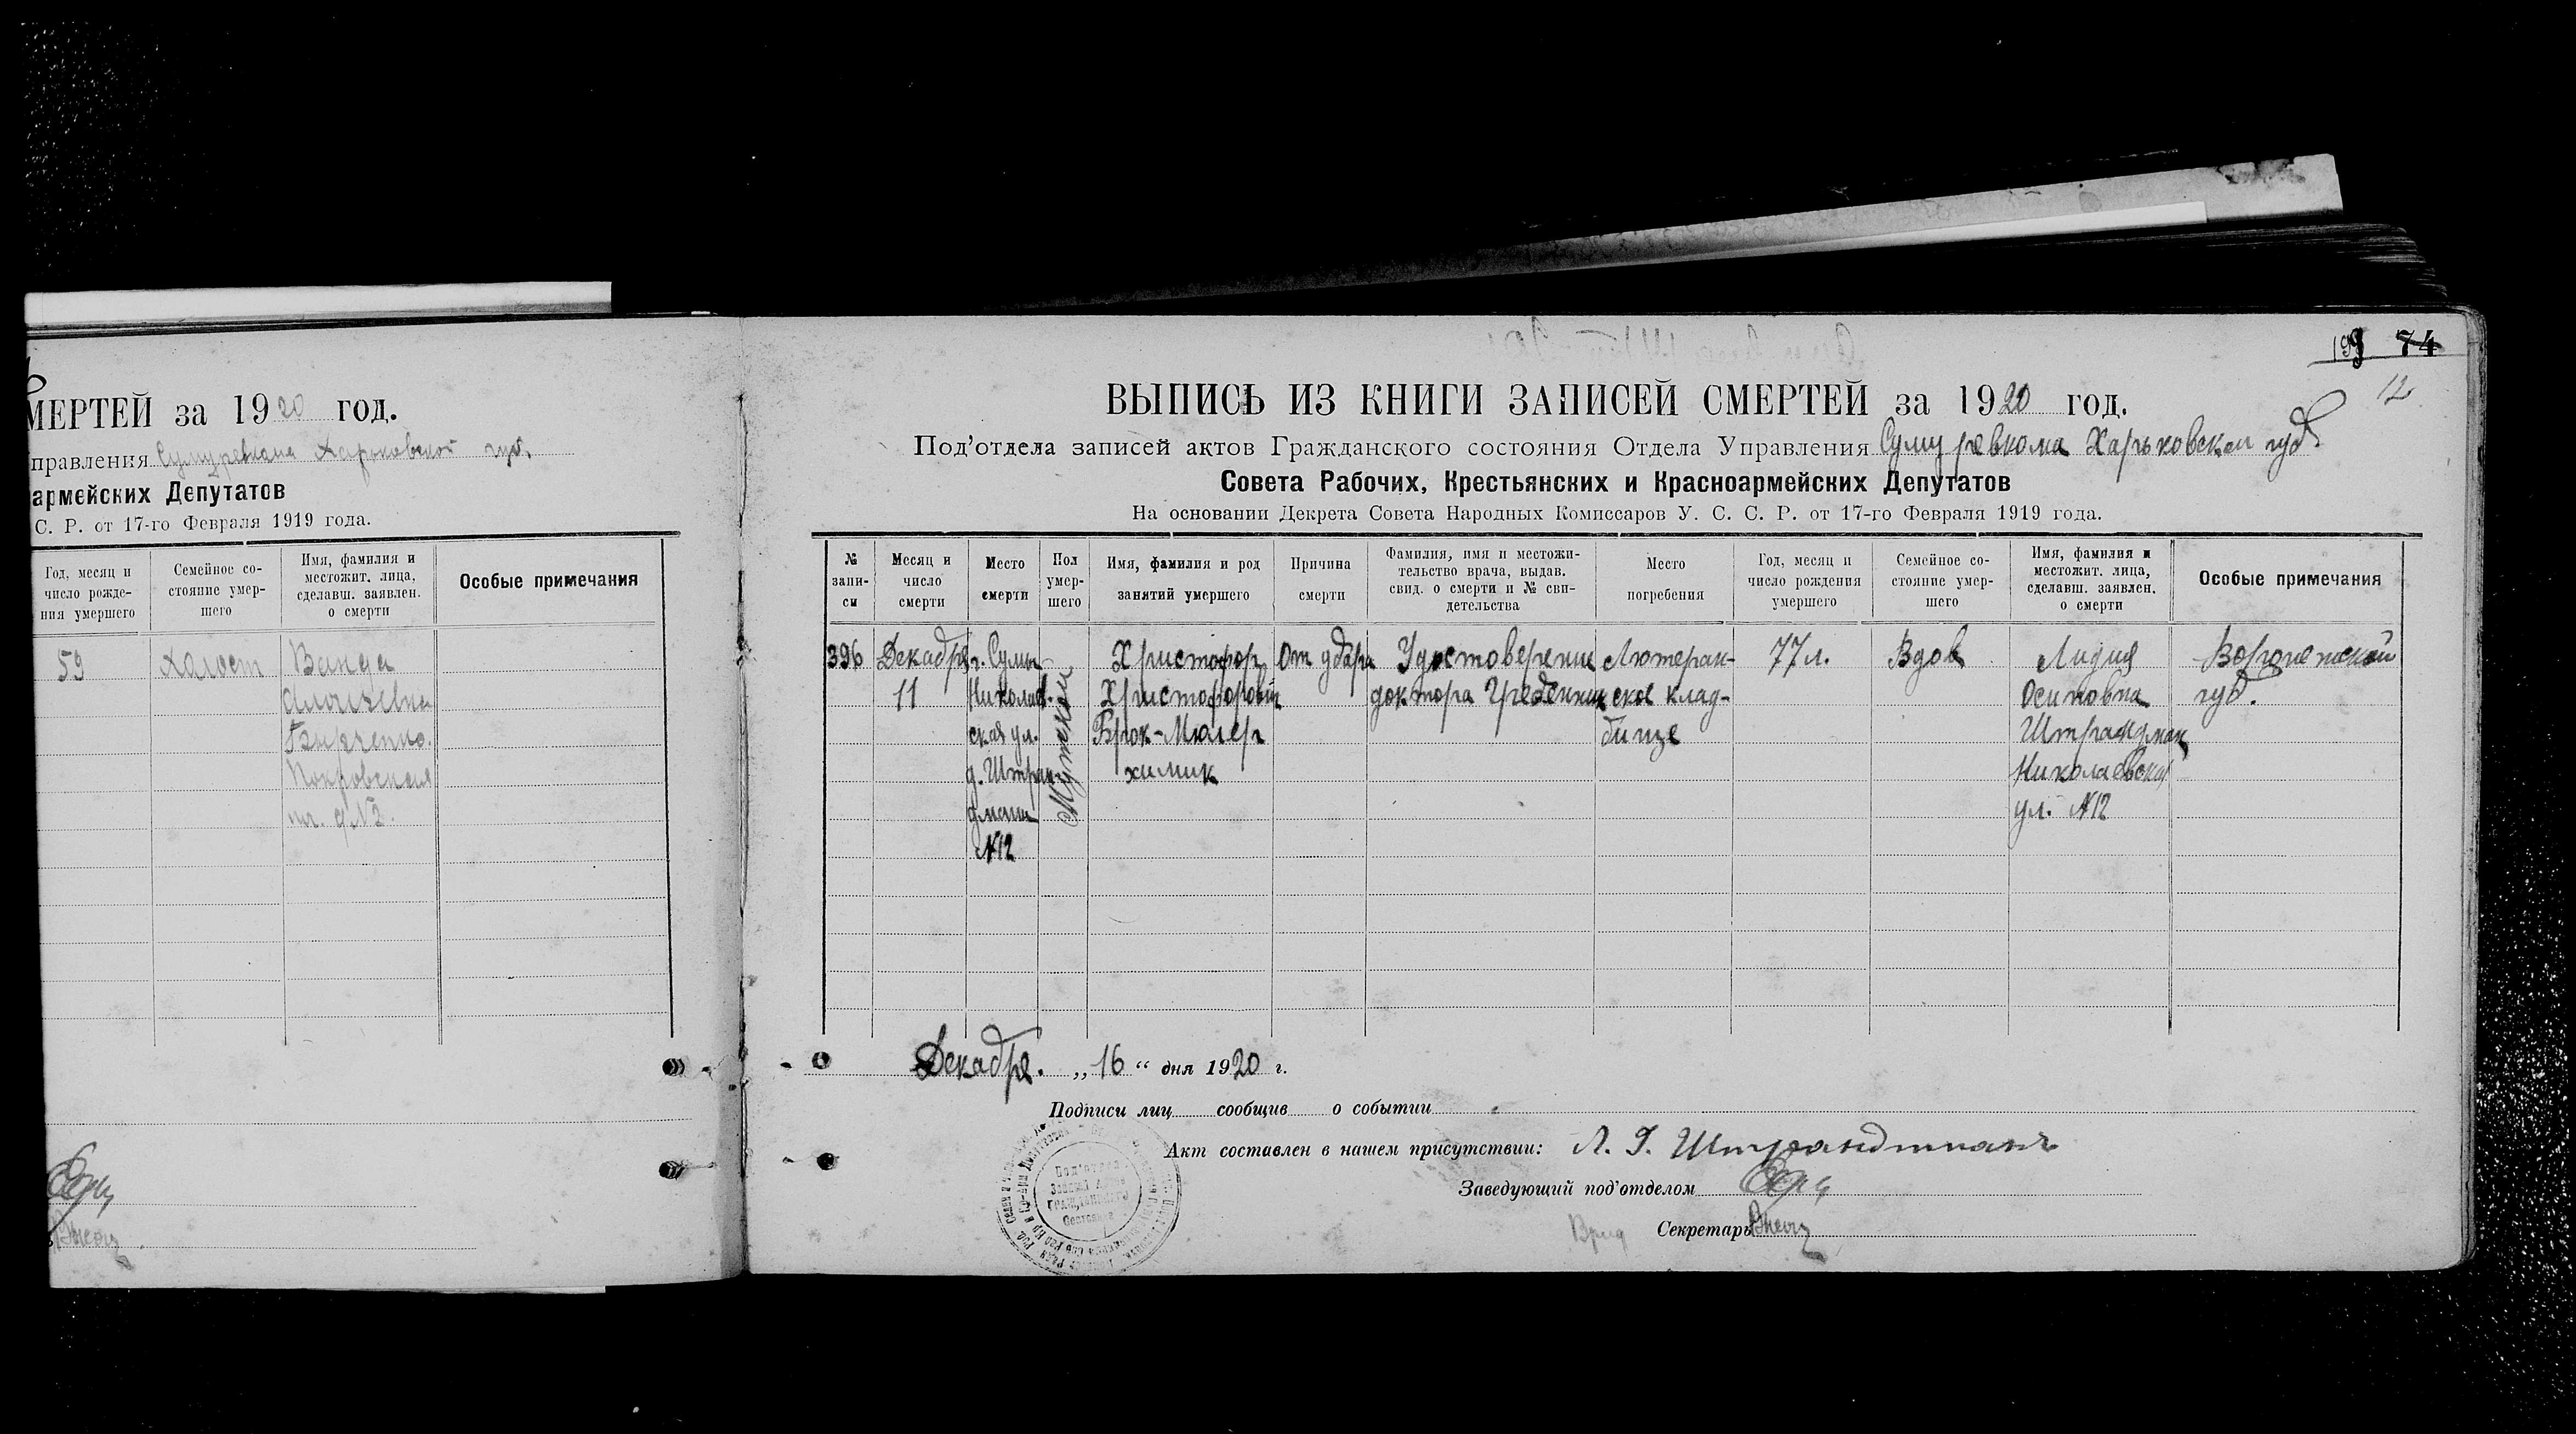 МЕРТЕЙ за 1920 год.
правления Сумуревкома Харьковской губ.
армейских Депутатов
С. Р. от 17-го Февраля 1919 года.
Год, месяц и
число рожде-
ния умершего
Семейное со-
стояние умер-
шего
Имя, фамилия и
местожит. лица,
сделавш. заявлен.
о смерти
Особые примечания
59
Холост
Ванда
Покровская
д №2.
74
12
ВЫПИСЬ ИЗ КНИГИ ЗАПИСЕЙ СМЕРТЕЙ за 1920 год.
Под'отдела записей актов Гражданского состояния Отдела Управления Сумуревкома Харьковской губ.
Совета Рабочих, Крестьянских и Красноармейских Депутатов
На основании Декрета Совета Народных Комиссаров У. С. С. Р. от 17-го Февраля 1919 года.
№
запи-
си
Месяц и
число
смерти
Место
смерти
Пол
умер-
шего
Имя, фамилия и род
занятий умершего
Причина
смерти
Фамилия, имя и местожи-
тельство врача, выдав.
свид. о смерти и № сви-
детельства
Место
погребения
Год, месяц и
число рождения
умершего
Семейное со-
стояние умер-
шего
Имя, фамилия и
местожит. лица,
сделавш. заявлен.
о смерти
Особые примечания
396
Декабря
11
г. Сумы
Николаев-
ская ул.
д. Штран-
дмана
№12
Мужской
Христофор
Христофоров
Брок-Мюлер
химик
От удара
Удостоверение
доктора
Лютеран-
ское клад-
бище
77 л.
Вдов
Лидия
Осиповна
Штрандман
Николаевская
ул. №12
Воронежской
губ.
Декабря. „16“ дня 1920 г.
Подписи лиц сообщив о событии
Акт составлен в нашем присутствии: Л. Штрандманъ
Заведующий под'отделом
Врид Секретарь
Под'отдел
Записи Актов
Гражданского
Состояния